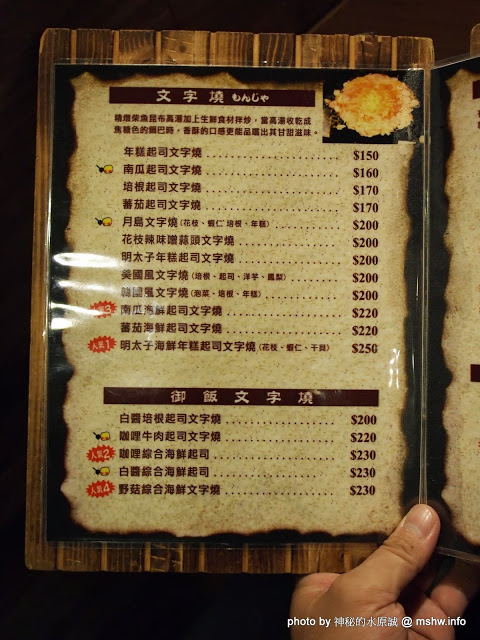 文字燒 もんじゃ
精燉柴魚昆布高湯加上生鮮食材拌炒，當高湯收乾成
焦糖色的鍋巴時，香酥的口感更能品嚐出其甘甜滋味。
年糕起司文字燒 $150
南瓜起司文字燒 $160
培根起司文字燒 $170
蕃茄起司文字燒 $170
月島文字燒（花枝、蝦仁、培根、年糕） $200
花枝辣味噌蒜頭文字燒 $200
明太子年糕起司文字燒 $200
美國風文字燒（培根、起司、洋芋、鳳梨） $200
韓國風文字燒（泡菜、培根、年糕） $200
人氣3 南瓜海鮮起司文字燒 $220
蕃茄海鮮起司文字燒 $220
人氣1 明太子海鮮年糕起司文字燒（花枝、蝦仁、干貝） $250
御飯文字燒
白醬培根起司文字燒 $200
咖哩牛肉起司文字燒 $220
人氣2 咖哩綜合海鮮起司 $230
白醬綜合海鮮起司 $230
人氣4 野菇綜合海鮮文字燒 $230
photo by 神秘的水原誠 @ mshw.info